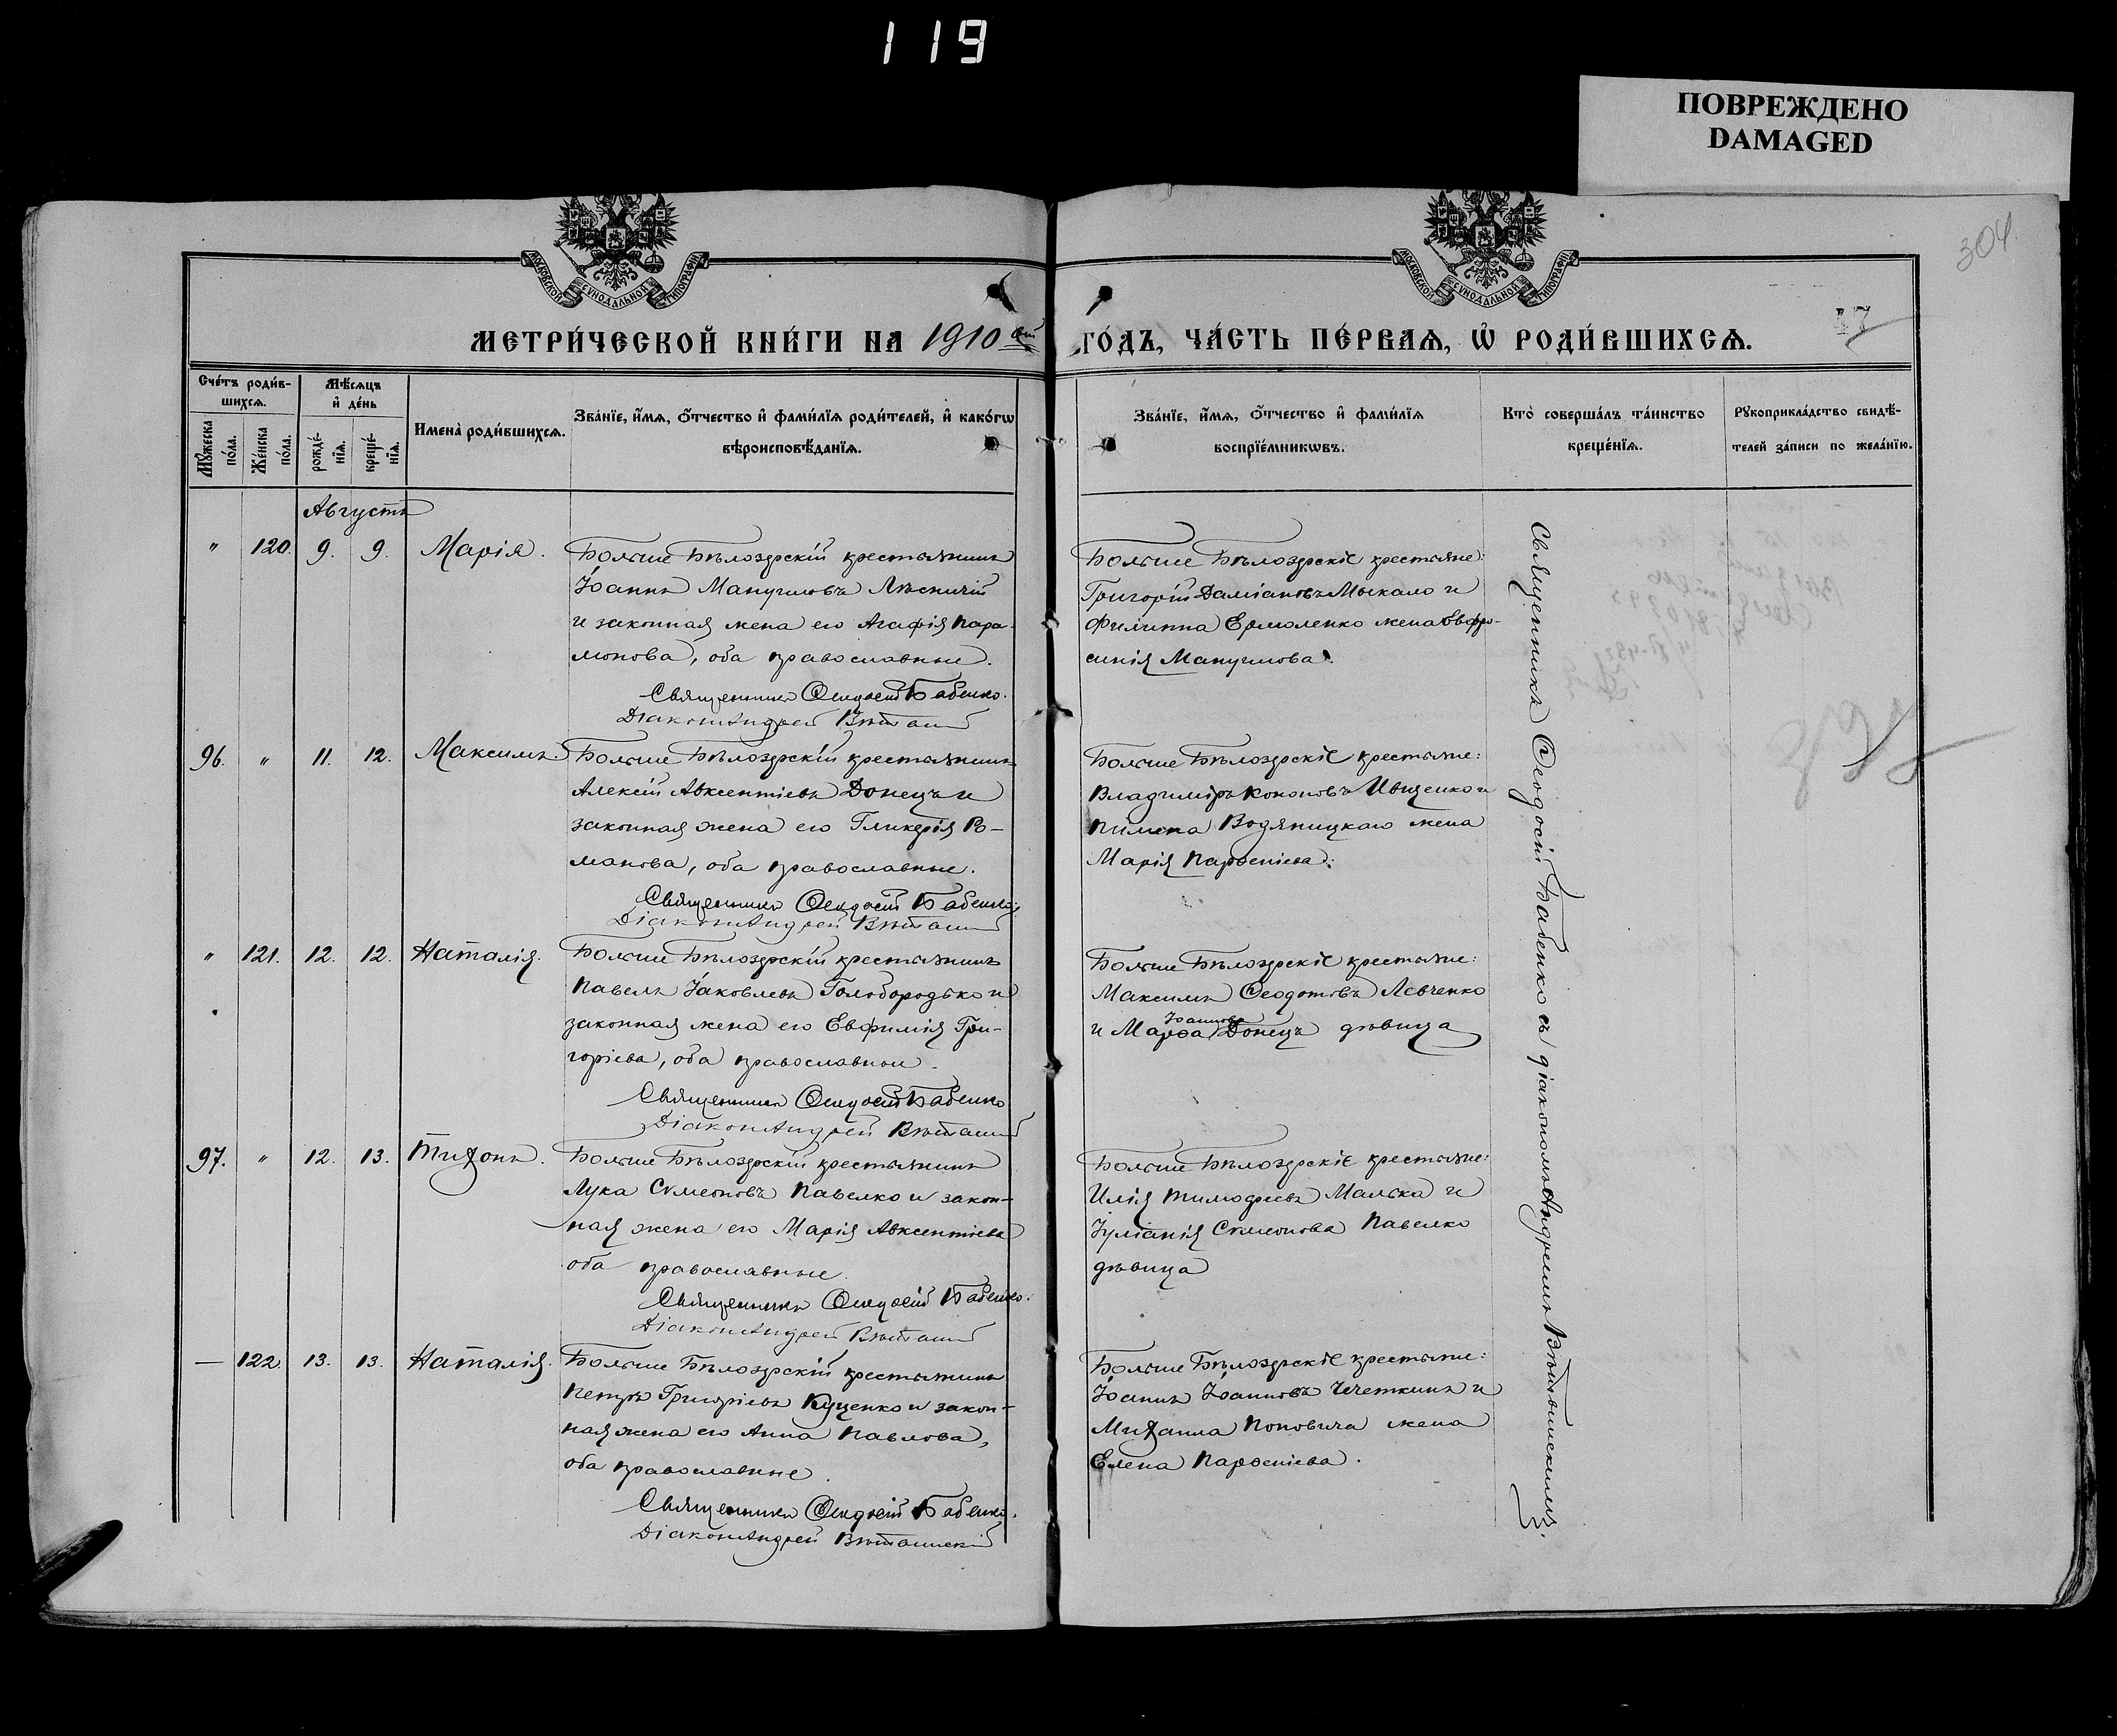 119
ПОВРЕЖДЕНО
DAMAGED
304
МОСКОВСКОЙ СѴНОДАЛЬНОЙ ТИПОГРАФІИ
МОСКОВСКОЙ СѴНОДАЛЬНОЙ ТИПОГРАФІИ
47
МЕТРИ́ЧЕСКОЙ КНИ́ГИ НА 1910 ый
ГО́ДЪ, ЧА́СТЬ ПЕ́РВАѦ, Ѡ҆ РОДИ́ВШИХСѦ.
Сче́тъ роди́в-
шихсѧ.
Мꙋ́жеска
по́ла.
Же́нска
по́ла.
Мѣ́сѧцъ
и҆ де́нь
рожде́-
нїѧ.
креще́-
нїѧ.
Имена̀ роди́вшихсѧ.
Зва́нїе, и҆́мѧ, ѻ҆́тчество и҆ фами́лїѧ роди́телей, и҆ како́гѡ
вѣроисповѣ́данїѧ.
Зва́нїе, и҆́мѧ, ѻ҆́тчество и҆ фами́лїѧ
воспрїе́мникѡвъ.
Кто̀ соверша́лъ та́инство
креще́нїѧ.
Рꙋкоприкла́дство свидѣ́-
телей за́писи по жела́нїю.
Августъ
" 120. 9. 9. Марія.
Больше Бѣлозерскій крестьянинъ
Іоаннъ Мануиловъ Лѣсничій
и законная жена его Агафія Пара-
монова, оба православные.
Священникъ Ѳеодосій Бабенко.
Діаконъ Андрей
Больше Бѣлозерскіе крестьяне:
Григорій Даміановъ Мыкало и
Филиппа Ермоленко жена Евфро-
синія Мануилова.
96. " 11. 12. Максимъ.
Больше Бѣлозерскій крестьянинъ
Алексій Авксентіевъ Донецъ и
законная жена его Гликерія Ро-
манова, оба православные.
Священникъ Ѳеодосій Бабенко
Діаконъ Андрей
Больше Бѣлозерскіе крестьяне:
Владиміръ Кононовъ Ивщенко и
Пимена Водяницкаго жена
Марія Парѳеніева.
" 121. 12. 12. Наталія.
Больше Бѣлозерскій крестьянинъ
Павелъ Іаковлевъ Голобородько и
законная жена его Евфимія Гри-
горіева, оба православные.
Священникъ Ѳеодосій Бабенко
Діаконъ Андрей
Больше Бѣлозерскіе крестьяне:
Максимъ Ѳеодотовъ Левченко
Іоаннова
и Марѳа Донецъ дѣвица
97. " 12. 13. Тихонъ.
Больше Бѣлозерскій крестьянинъ
Лука Сѵмеоновъ Павелко и закон-
ная жена его Марія Авксентіева
оба православные.
Священникъ Ѳеодосій Бабенко.
Діаконъ Андрей
Больше Бѣлозерскіе крестьяне:
Илія Тимоѳеевъ Малька и
Іуліанія Сѵмеонова Павелко
дѣвица
— 122. 13. 13. Наталія.
Больше Бѣлозерскій крестьянинъ
Петръ Григоріевъ Куценко и закон-
ная жена его Анна Павлова,
оба православные.
Священникъ Ѳеодосій Бабенко.
Діаконъ Андрей
Больше Бѣлозерскіе крестьяне:
Іоаннъ Іоанновъ Щеткинъ и
Михаила Поповича жена
Елена Парѳеніева.
Священникъ Ѳеодосій Бабенко съ діакономъ Андреемъ